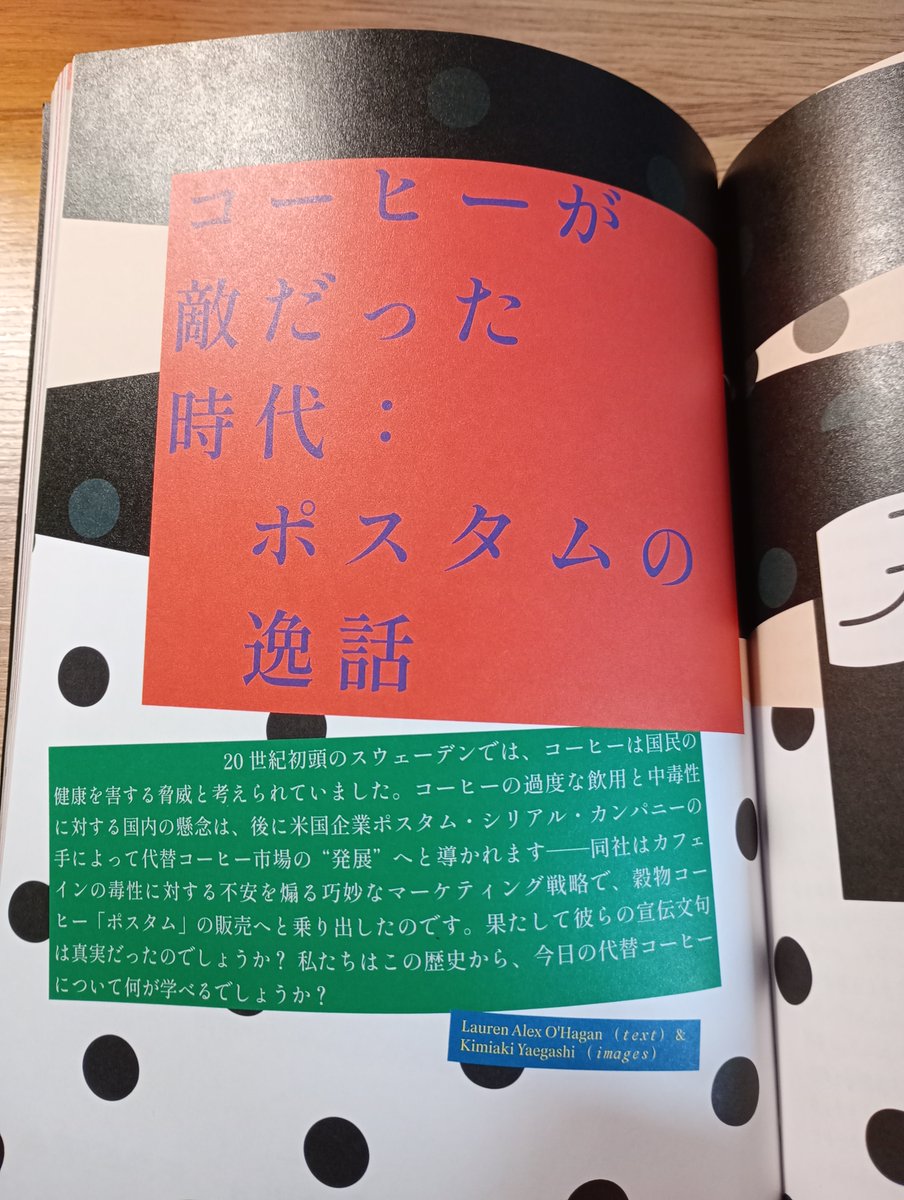 コーヒーが
敵だった
時代：
ポスタムの
逸話
20世紀初頭のスウェーデンでは、コーヒーは国民の
健康を害する脅威と考えられていました。コーヒーの過度な飲用と中毒性
に対する国内の懸念は、後に米国企業ポスタム・シリアル・カンパニーの
手によって代替コーヒー市場の“発展”へと導かれます──同社はカフェ
インの毒性に対する不安を煽る巧妙なマーケティング戦略で、穀物コー
ヒー「ポスタム」の販売へと乗り出したのです。果たして彼らの宣伝文句
は真実だったのでしょうか？ 私たちはこの歴史から、今日の代替コーヒー
について何が学べるでしょうか？
Lauren Alex O'Hagan (text) &
Kimiaki Yaegashi (images)